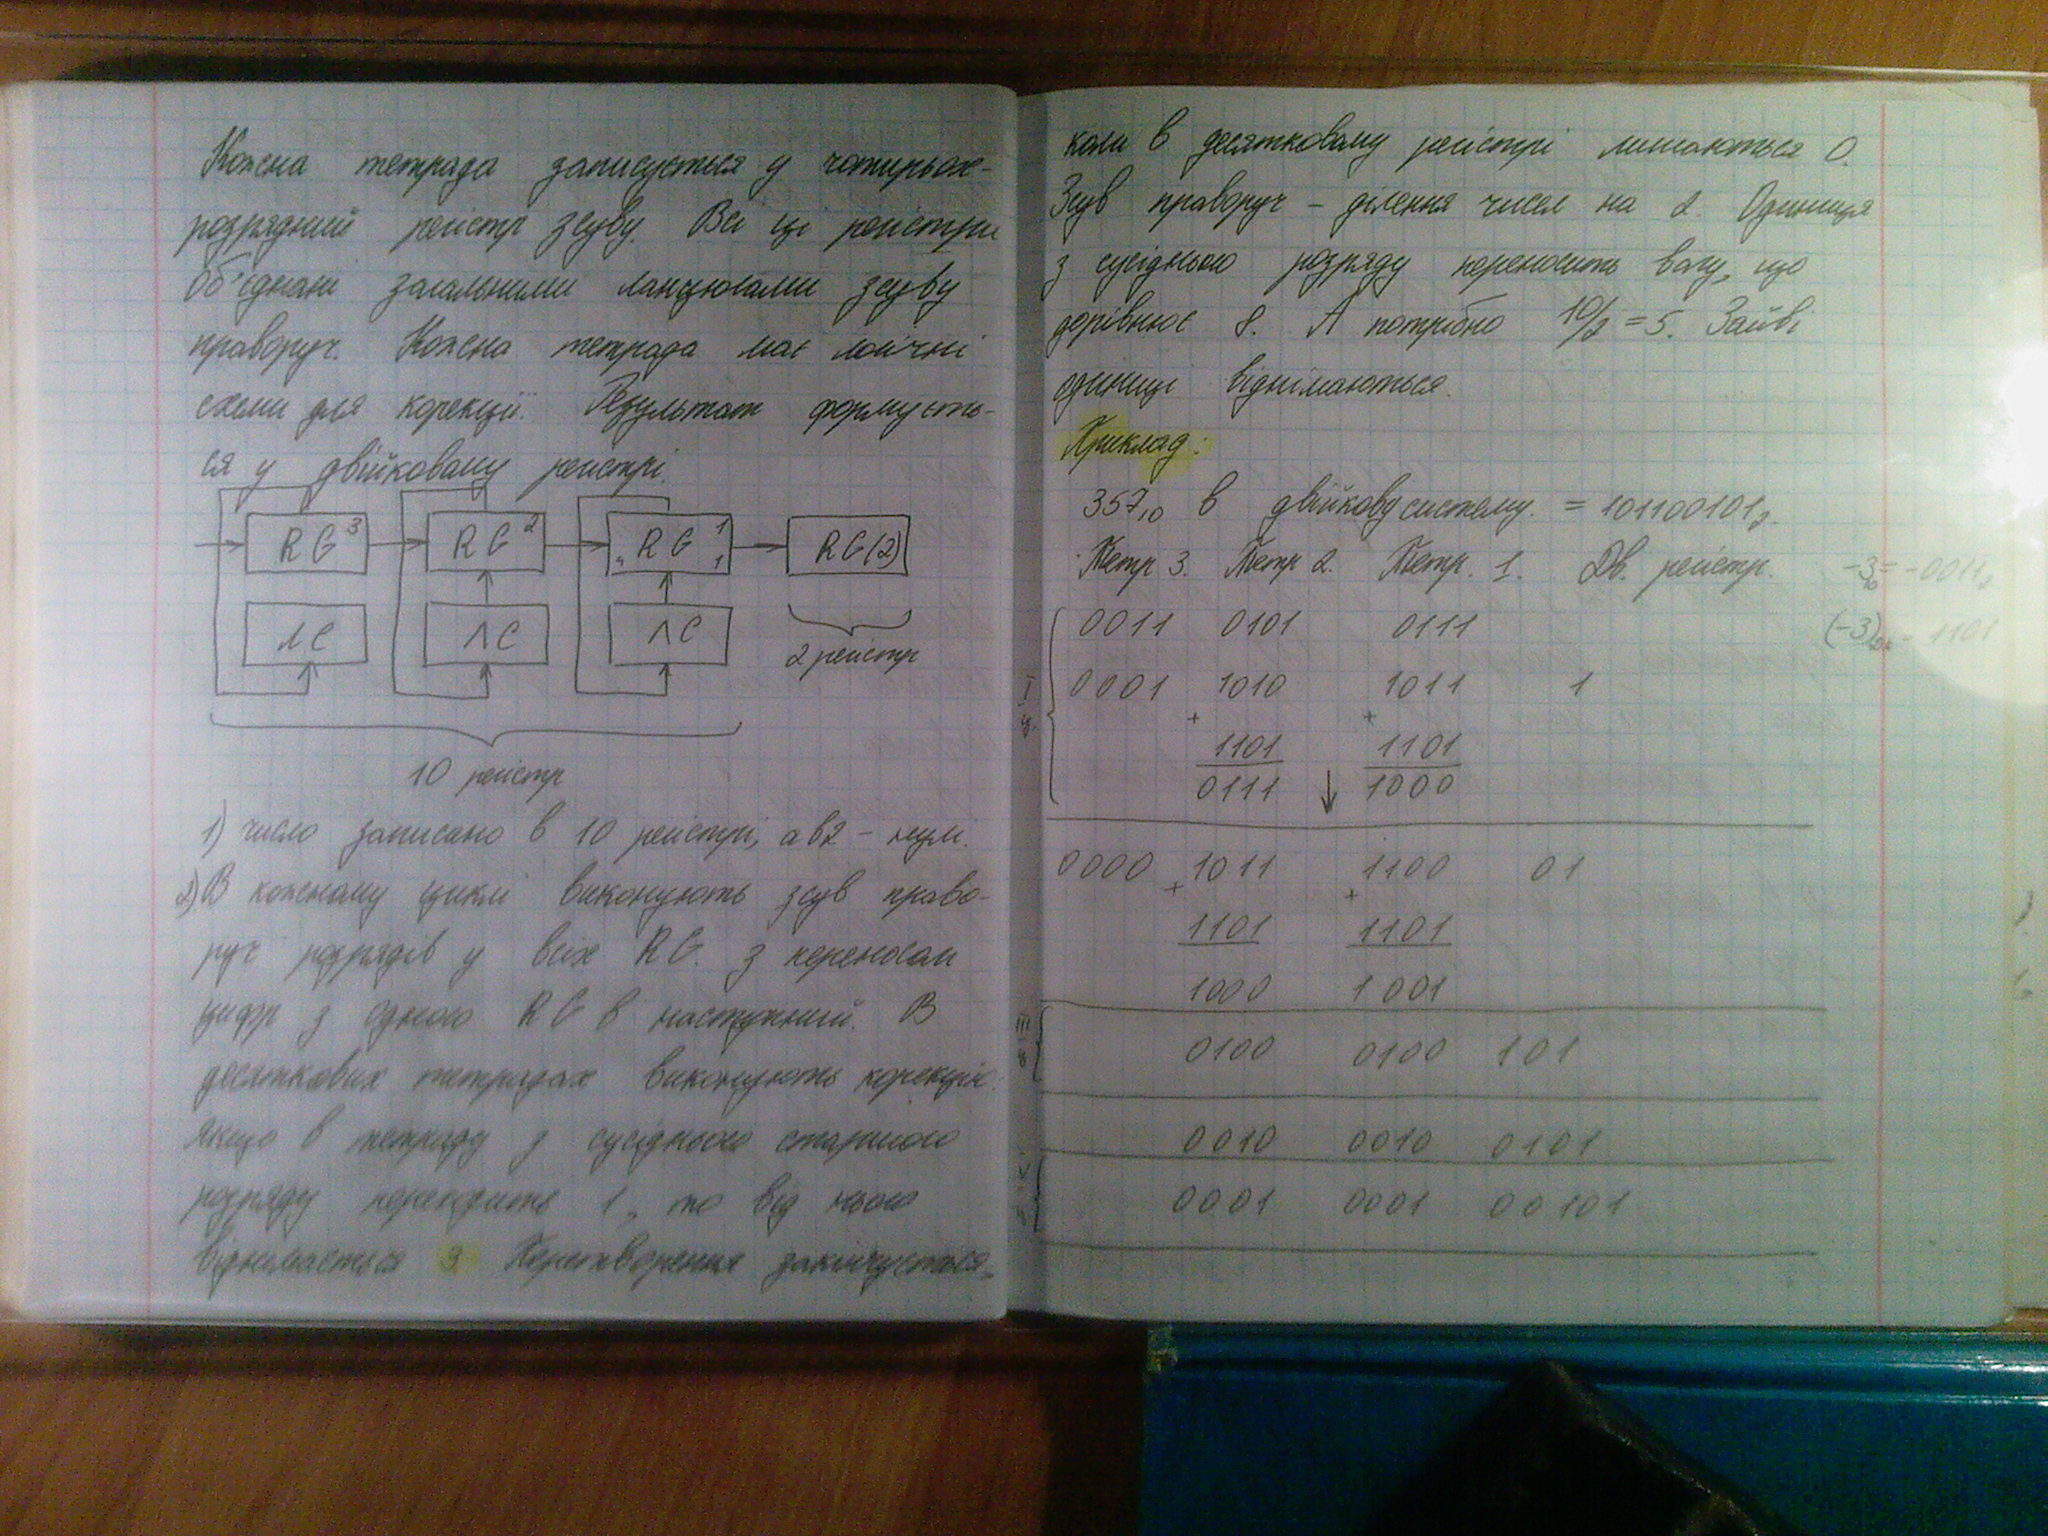 Кожна тетрада записується у чотирьох-
розрядний регістр зсуву. Всі ці регістри
об'єднані загальними ланцюгами зсуву
праворуч. Кожна тетрада має логічні
схеми для корекції. Результат формуєть-
ся у двійковому регістрі.
RG 3 RG 2 RG 1 RG(2)
ЛС ЛС ЛС
2 регістр
10 регістр
1) число записано в 10 регістрі, а в 2 – нулі.
2) В кожному циклі виконують зсув право-
руч розрядів у всіх RG. з переносом
цифр з одного RG в наступний. В
десяткових тетрадах виконують корекцію:
якщо в тетраду з сусіднього старшого
розряду переходить 1, то від нього
віднімається 3 Перетворення закінчується,
коли в десятковому регістрі лишаються 0.
Зсув праворуч – ділення чисел на 2. Одиниця
з сусіднього розряду переносить вагу, що
дорівнює 8. А потрібно 10/2 = 5. Зайві
одиниці віднімаються.
Приклад:
357₁₀ в двійкову систему. = 101100101₂.
Тетр 3. Тетр 2. Тетр. 1. Дв. регістр. -3₁₀ = -0011₂
0011 0101 0111 (-3) = 1101
I ц. 0001 1010 1011 1
+ +
1101 1101
0111 ↓ 1000
0000 1011 1100 01
+ +
1101 1101
1000 1001
III ц 0100 0100 101
0010 0010 0101
V ц 0001 0001 00101